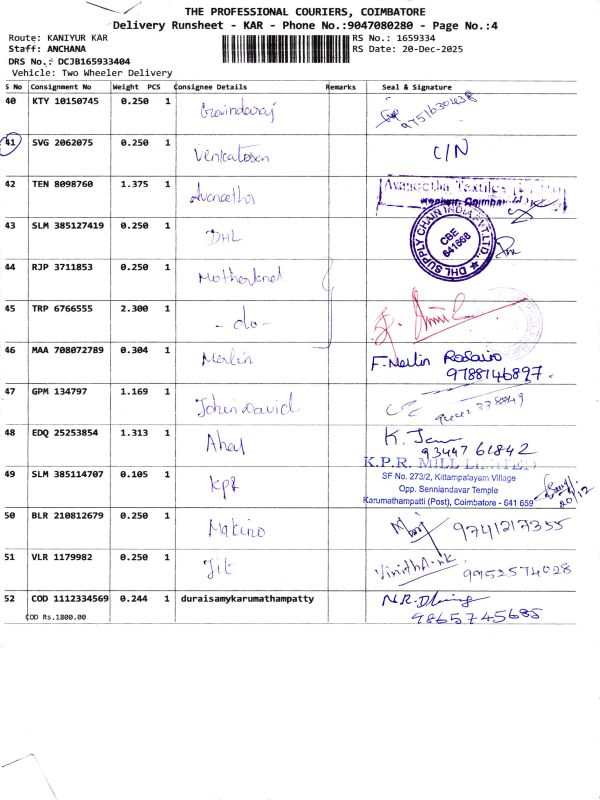 THE PROFESSIONAL COURIERS, COIMBATORE
Delivery Runsheet - KAR - Phone No.:9047080280 - Page No.:4
Route: KANIYUR KAR RS No.: 1659334
Staff: ANCHANA RS Date: 20-Dec-2025
DRS No.: DCJB165933404
Vehicle: Two Wheeler Delivery
S No Consignment No Weight PCS Consignee Details Remarks Seal & Signature
40 KTY 10150745 0.250 1 Govindaraj
9751630438
41 SVG 2062075 0.250 1 Venkatesan C/N
42 TEN 8098760 1.375 1 Avaneetha Avaneetha Textiles
43 SLM 385127419 0.250 1 DHL DHL SUPPLY CHAIN INDIA PVT. LTD. CBE 641668
44 RJP 3711853 0.250 1 Motherland
45 TRP 6766555 2.300 1 - do -
46 MAA 708072789 0.304 1 Merlin F. Merlin Rosairo
9788146897.
47 GPM 134797 1.169 1 John David
48 EDQ 25253854 1.313 1 K.
9344761842
49 SLM 385114707 0.105 1 KPR K.P.R. MILL LIMITED
SF No. 273/2, Kittampalayam Village
Opp. Senniandavar Temple
Karumathampatti (Post), Coimbatore - 641 659
20/12
50 BLR 210812679 0.250 1 Makino 9741217355
51 VLR 1179982 0.250 1 Jit Vinitha.nk
9952574028
52 COD 1112334569 0.244 1 duraisamykarumathampatty N.R.
COD Rs.1800.00 9865745685